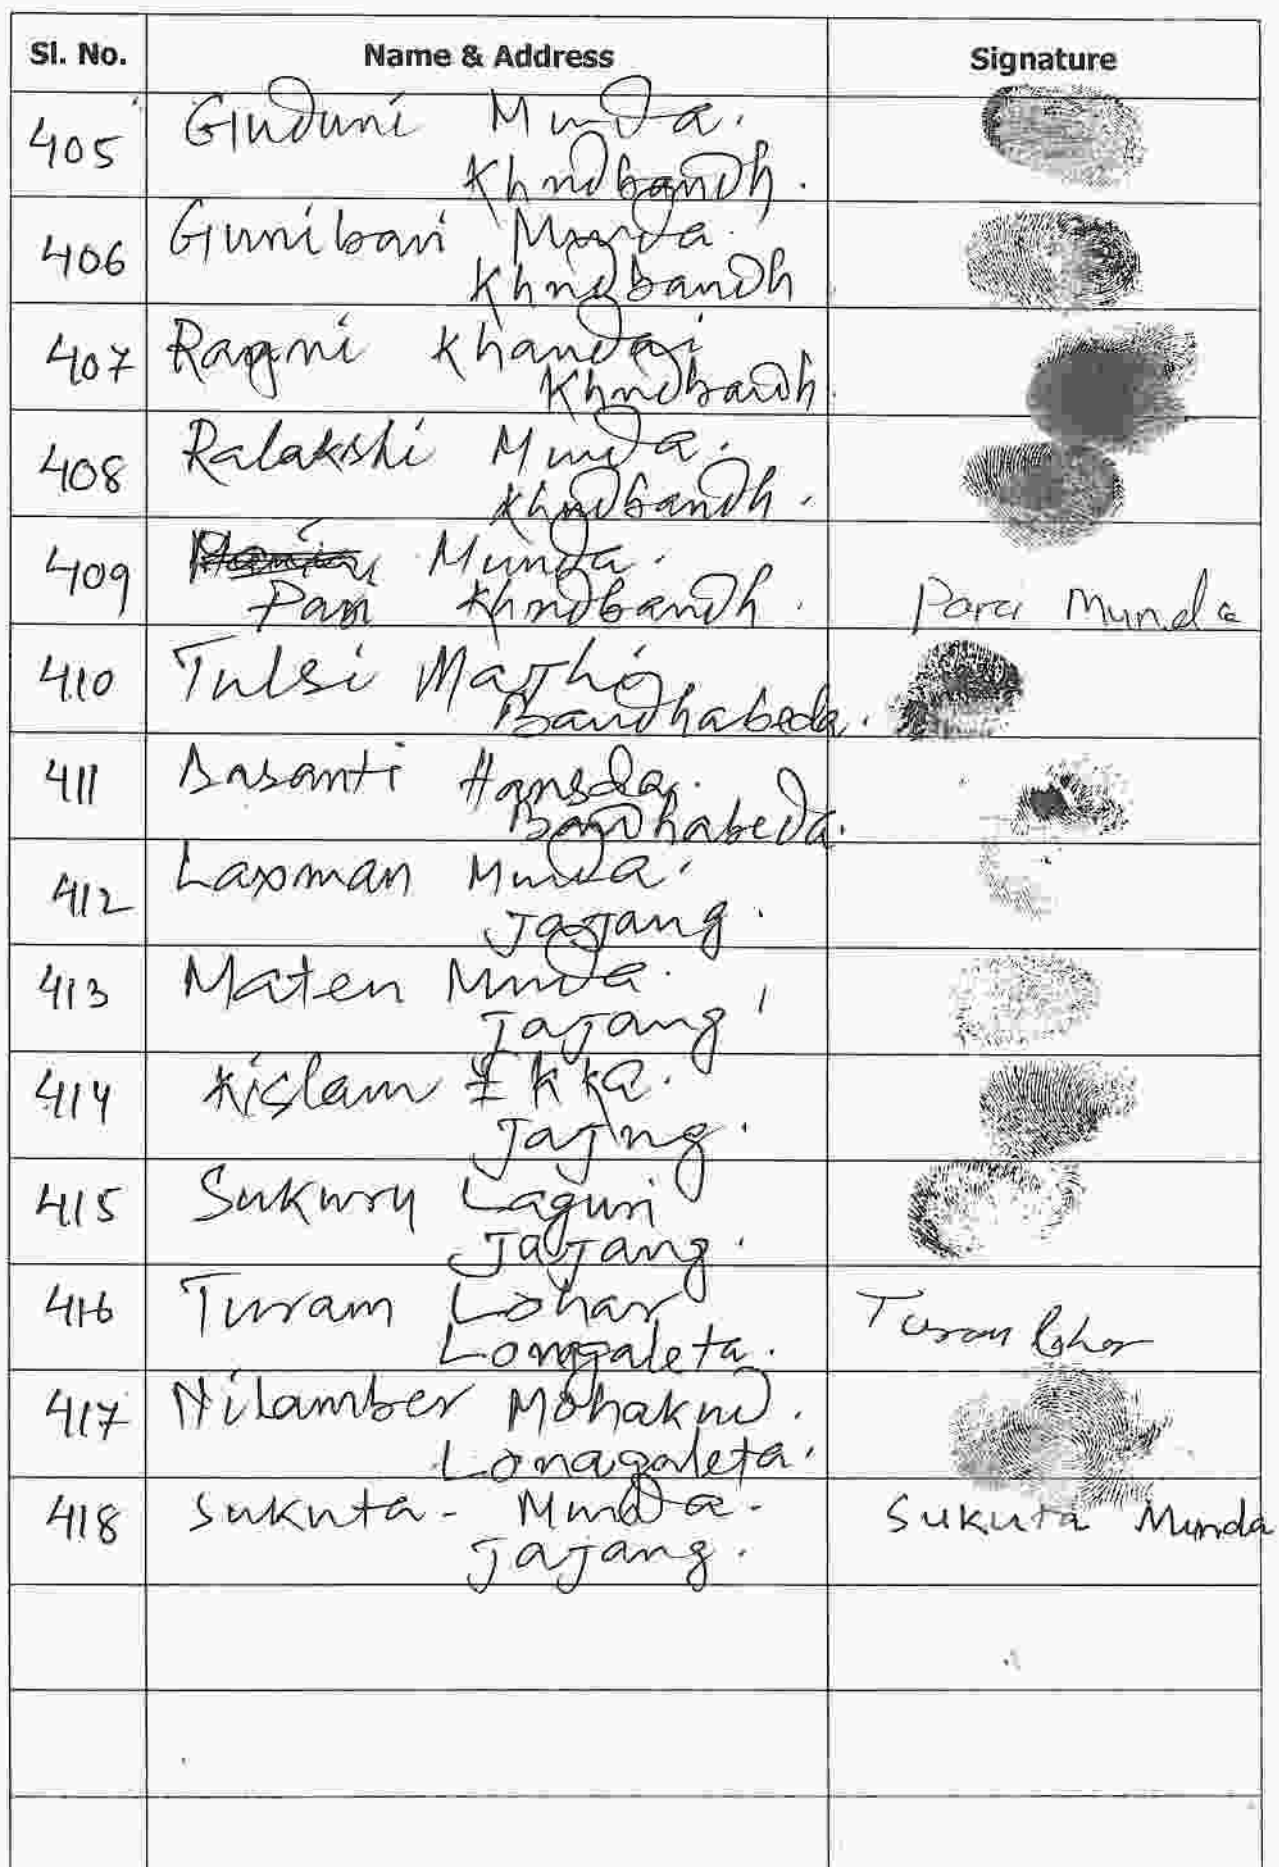 Sl. No. Name & Address Signature
405 Guduni Munda.
Khndbandh.
406 Gunibari Munda.
Khndbandh
407 Ragni Khandai
Khndbandh.
408 Ralakshi Munda.
Khndbandh.
409 Munda.
Pan Khndbandh. Para Munda
410 Tulsi Majhi
Bandhabeda.
411 Basanti Hansda.
Bandhabeda.
412 Laxman Munda.
Jajang.
413 Maten Munda.
Jajang
414 Kislam Ekka.
Jajng.
415 Sukury Laguri
Jajang.
416 Turam Lohar Turam Lohar
Longgaleta.
417 Nilamber Mohakud.
Lonagaleta.
418 Sukuta - Munda. Sukuta Munda
Jajang.